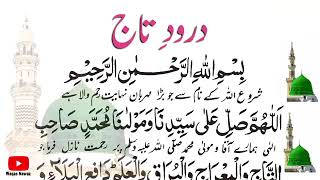 درود تاج
بِسْمِ اللهِ الرَّحْمٰنِ الرَّحِيْمِ
شروع اللہ کے نام سے جو بڑا مہربان نہایت رحم والا ہے
اَللّٰهُمَّ صَلِّ عَلٰى سَيِّدِنَا وَمَوْلٰنَا مُحَمَّدٍ صَاحِبِ
الٰہی ہمارے آقا و مولیٰ محمد صلی اللہ علیہ وسلم پر رحمت نازل فرما جو
التَّاجِ وَالْمِعْرَاجِ وَالْبُرَاقِ وَالْعَلَمِ دَافِعِ الْبَلَاءِ وَ
Waqas Nawaz